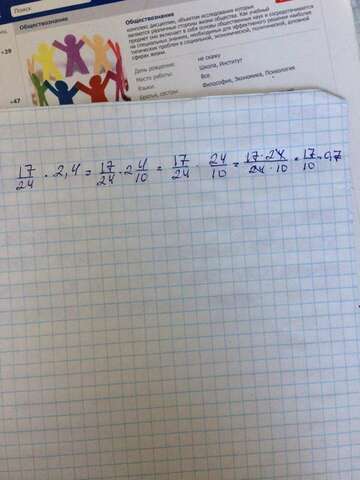 Поиск
Обществознание
Обществознание
комплекс дисциплин, объектом исследования которых
являются различные стороны жизни общества. Как учебный
предмет оно включает в себя основы общественных наук и сосредотачивается
на специальных знаниях, необходимых для эффективного решения наиболее
типических проблем в социальной, экономической, политической, духовной
сферах жизни.
+39
День рождения: не скажу
Место работы: Школа, Институт
Языки: Все
Братья, сестры: Философия, Экономика, Психология
+47
17/24 · 2,4 = 17/24 · 2 4/10 = 17/24 · 24/10 = 17·24/24·10 = 17/10 =